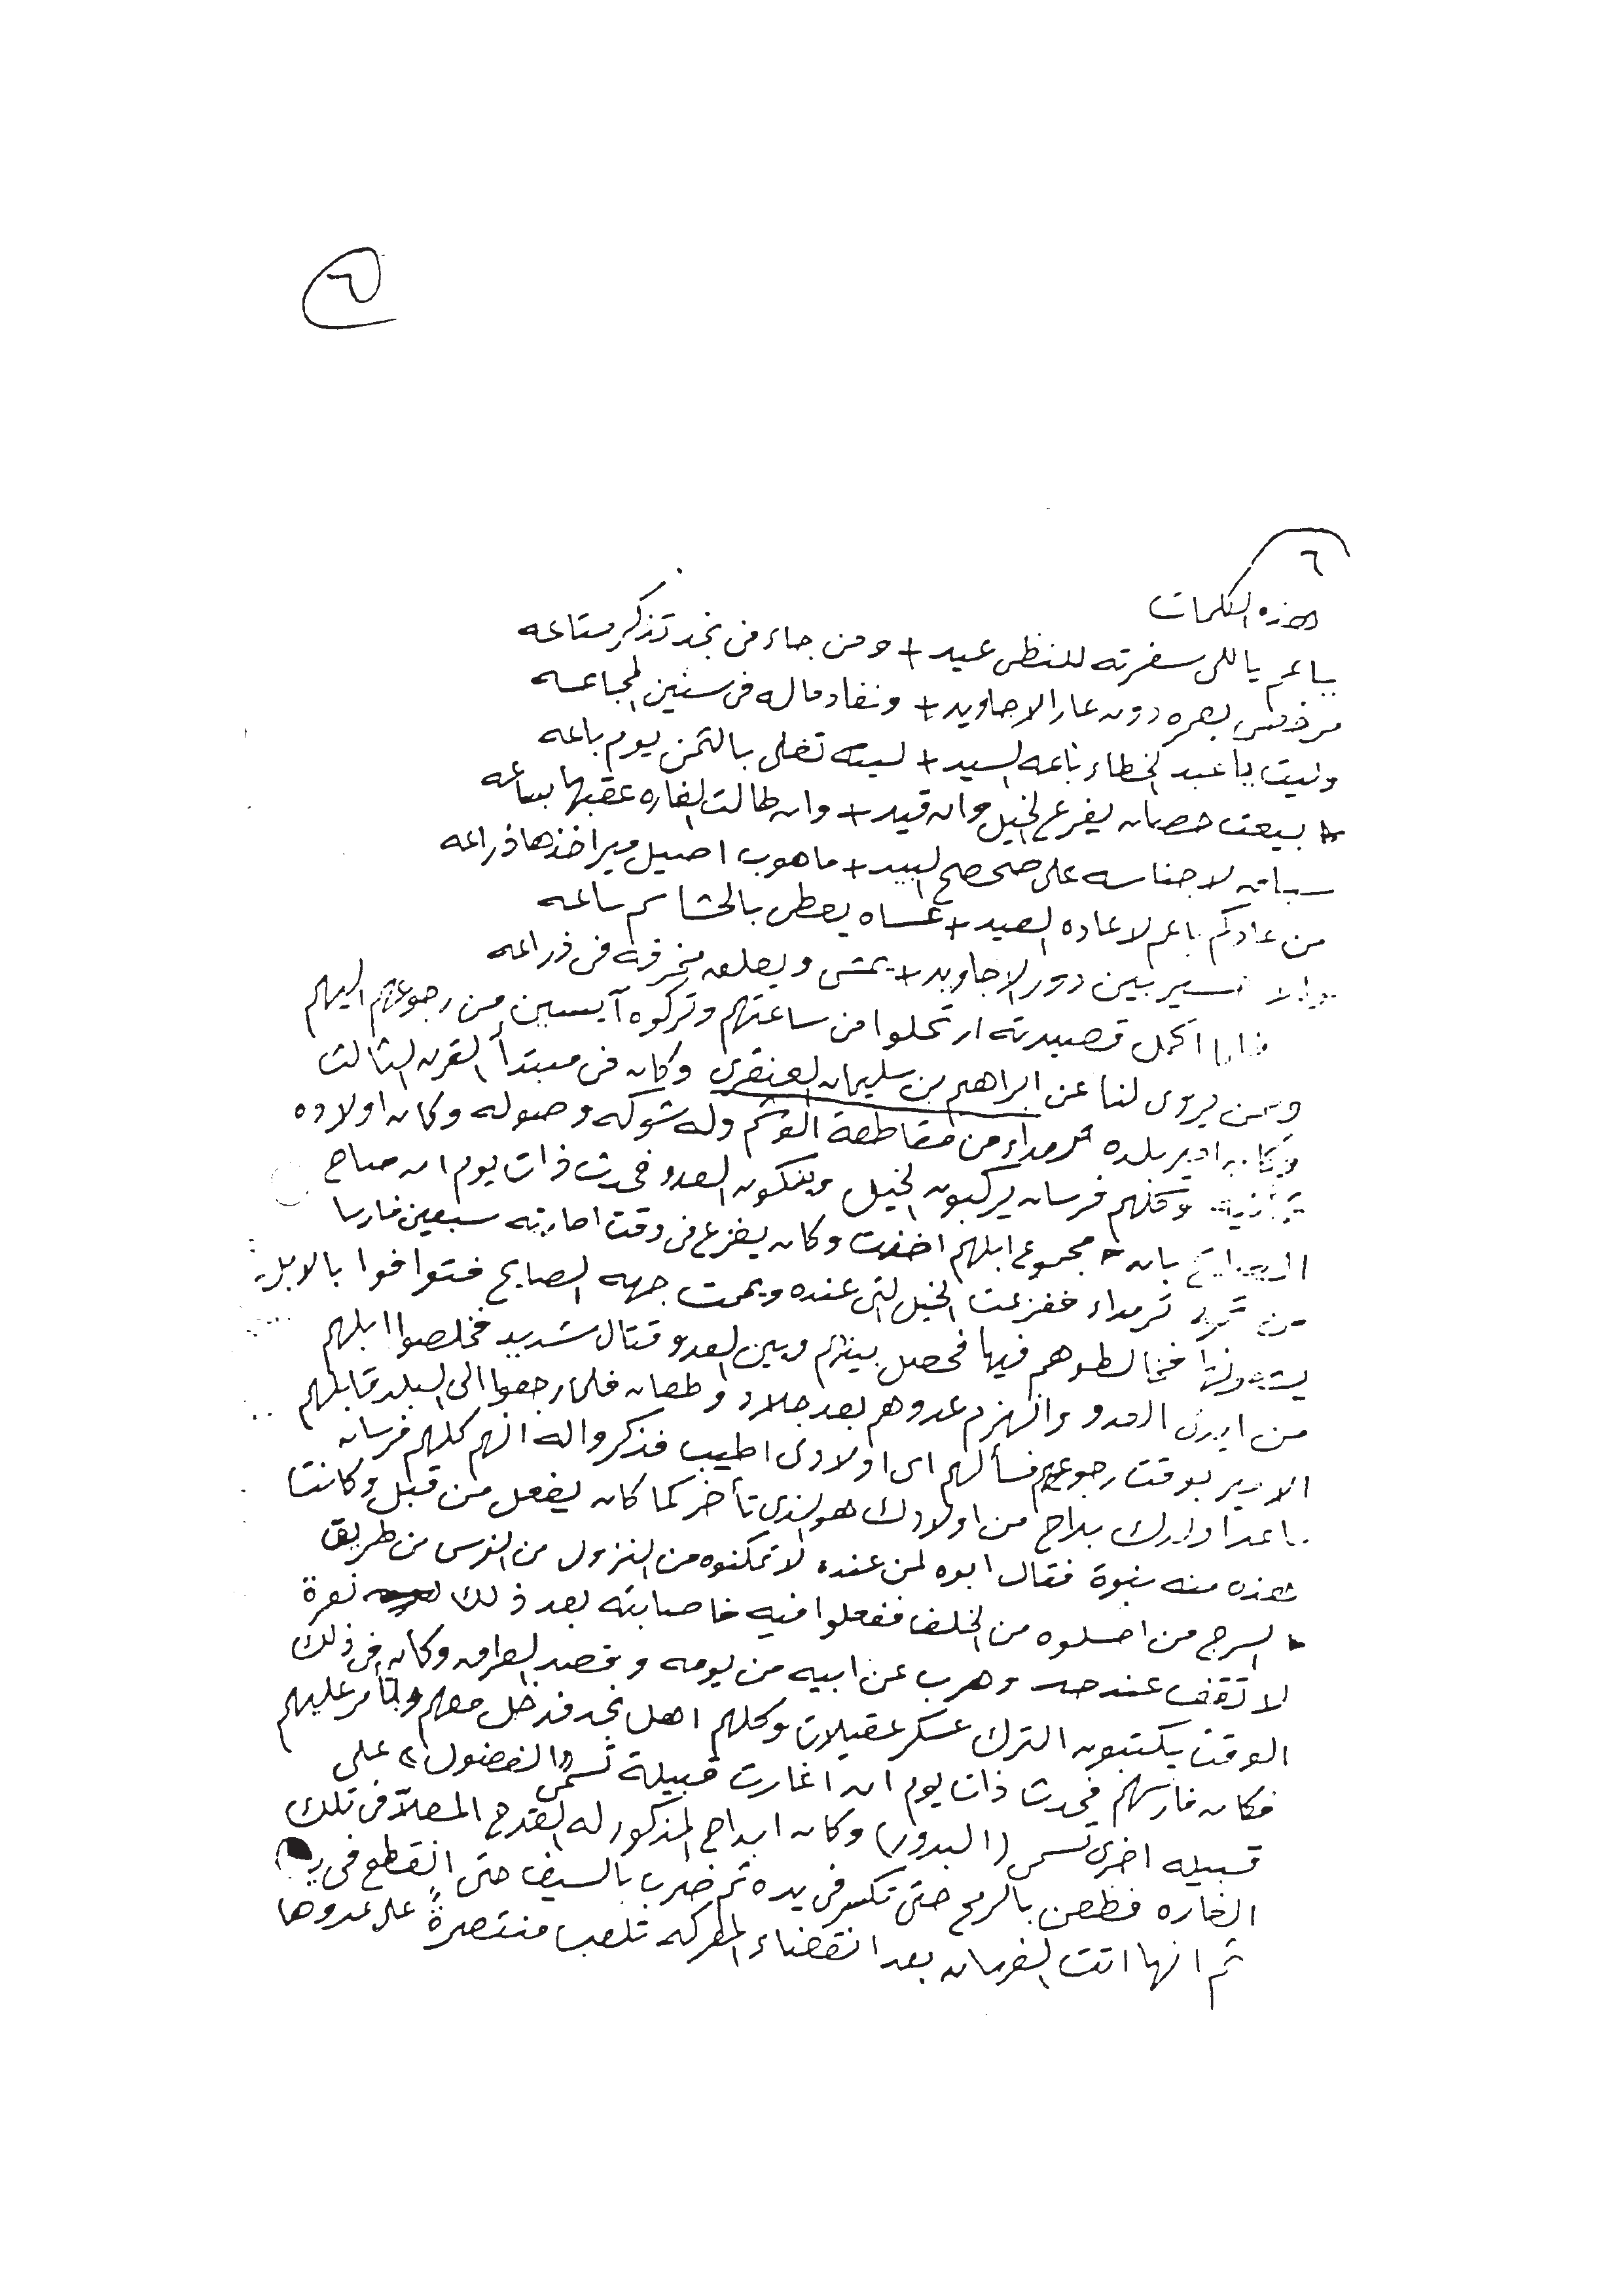 ٦
٦
هذه الكلمات
ياعم ياللى سفرته للنظى عيد + ومن جاء فى نجد تذكر متاعه
مرخص بعمره دون عار الاجاويد + ونفاد ماله فى سنين المجاعه
وليت ياعبد الخطاء باعه السيد + ليته تغلى بالثمن يوم باعه
بيعت حصان يفرع الخيل وان قيد + وان طالت الغاره عقبها بساعه
سباق لاجناسه على صحصح البيد + ماهوب اصيل ميراخذها ذراعه
من عادكم ياعم لاعاده العيد + عساه يعطى بالحشا كم ساعه
والا اسير بين دور الاجاويد + يمشى ويعلق مخرفه فى ذراعه
فلما اكمل قصيدته ارتحلوا من ساعتهم وتركوه آيسين من رجوعهم اليهم
وممن يروى لنا عن ابراهيم بن سليمان العنقرى وكان فى مبتدأ القرن الثالث
وكان امير بلده ثرمداء من مقاطعة الوشم وله شوكه وصوله وكان اولاده
ثمانية وكلهم فرسان يركبون الخيل وينكون العدو فحدث ذات يوم ان صاح
الصايح بان مجموع ابلهم اخذت وكان يفزع فى وقت امارته سبعين فارسا
من ثرمداء ففزعت الخيل التى عنده ويممت جهه الصايح فتوافوا بالابل
فخالطوهم فيها فحصل بينهم وبين العدو قتال شديد فخلصوا ابلهم
من ايدى العدو وانهزم عدوهم بعد جلاد وطعان فلما رجعوا الى البلد قابلهم
الامير بوقت رجوعهم فسألهم اى اولادى اطيب فذكروا له انهم كلهم فرسان
ماعدا ولدك بداح من اولادك هو الذى تأخر كما كان يفعل من قبل وكانت
هذه منه نبوة فقال ابوه لمن عنده لا تمكنوه من النزول من الفرس من طريق
السرج من انسلوه من الخلف ففعلوا فيه فاصابته بعد ذلك نعرة
لا تقف عند حد وهرب عن ابيه من يومه وقصد العراق وكان فى ذلك
الوقت يكتبون الترك عسكر عقيلات وكلهم اهل نجد فدخل معهم وتأمر عليهم
فكان فارسهم فحدث ذات يوم ان اغارت قبيلة تسمى «الفضول» على
قبيله اخرى تسمى (البدور) وكان ابداح المذكور له القدح المعلاّ فى تلك
الغاره فطعن بالرمح حتى تكسر فى يده ثم ضرب بالسيف حتى انقطع فى
ثم انها اتت الفرسان بعد انقضاء المعركه تلعب منتصرةً على عدوها